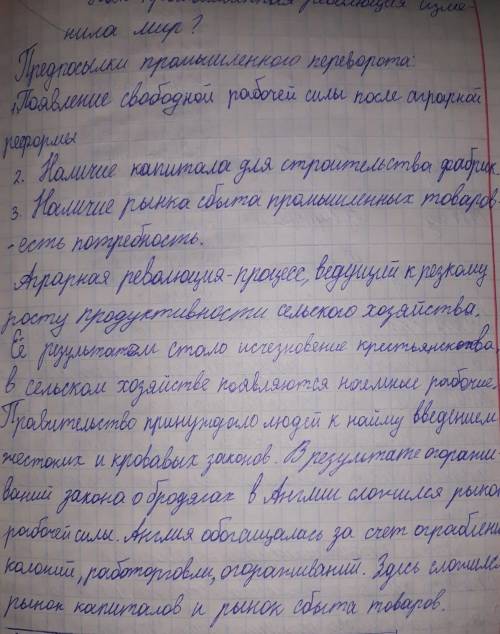 промышленная революция изме-
нила мир?
Предпосылки промышленного переворота:
1. Появление свободной рабочей силы после аграрной
реформы
2. Наличие капитала для строительства фабрик
3. Наличие рынка сбыта промышленных товаров-
-есть потребность.
Аграрная революция-процесс, ведущий к резкому
росту продуктивности сельского хозяйства.
Её результатом стало исчезновение крестьянства,
в сельском хозяйстве появляются наемные рабочие.
Правительство принуждало людей к найму введением
жестоких и кровавых законов. В результате огоражи-
ваний закона о бродягах в Англии сложился рынок
рабочей силы. Англия обогащалась за счет ограбления
колоний, работорговли, огораживаний. Здесь сложился
рынок капиталов и рынок сбыта товаров.